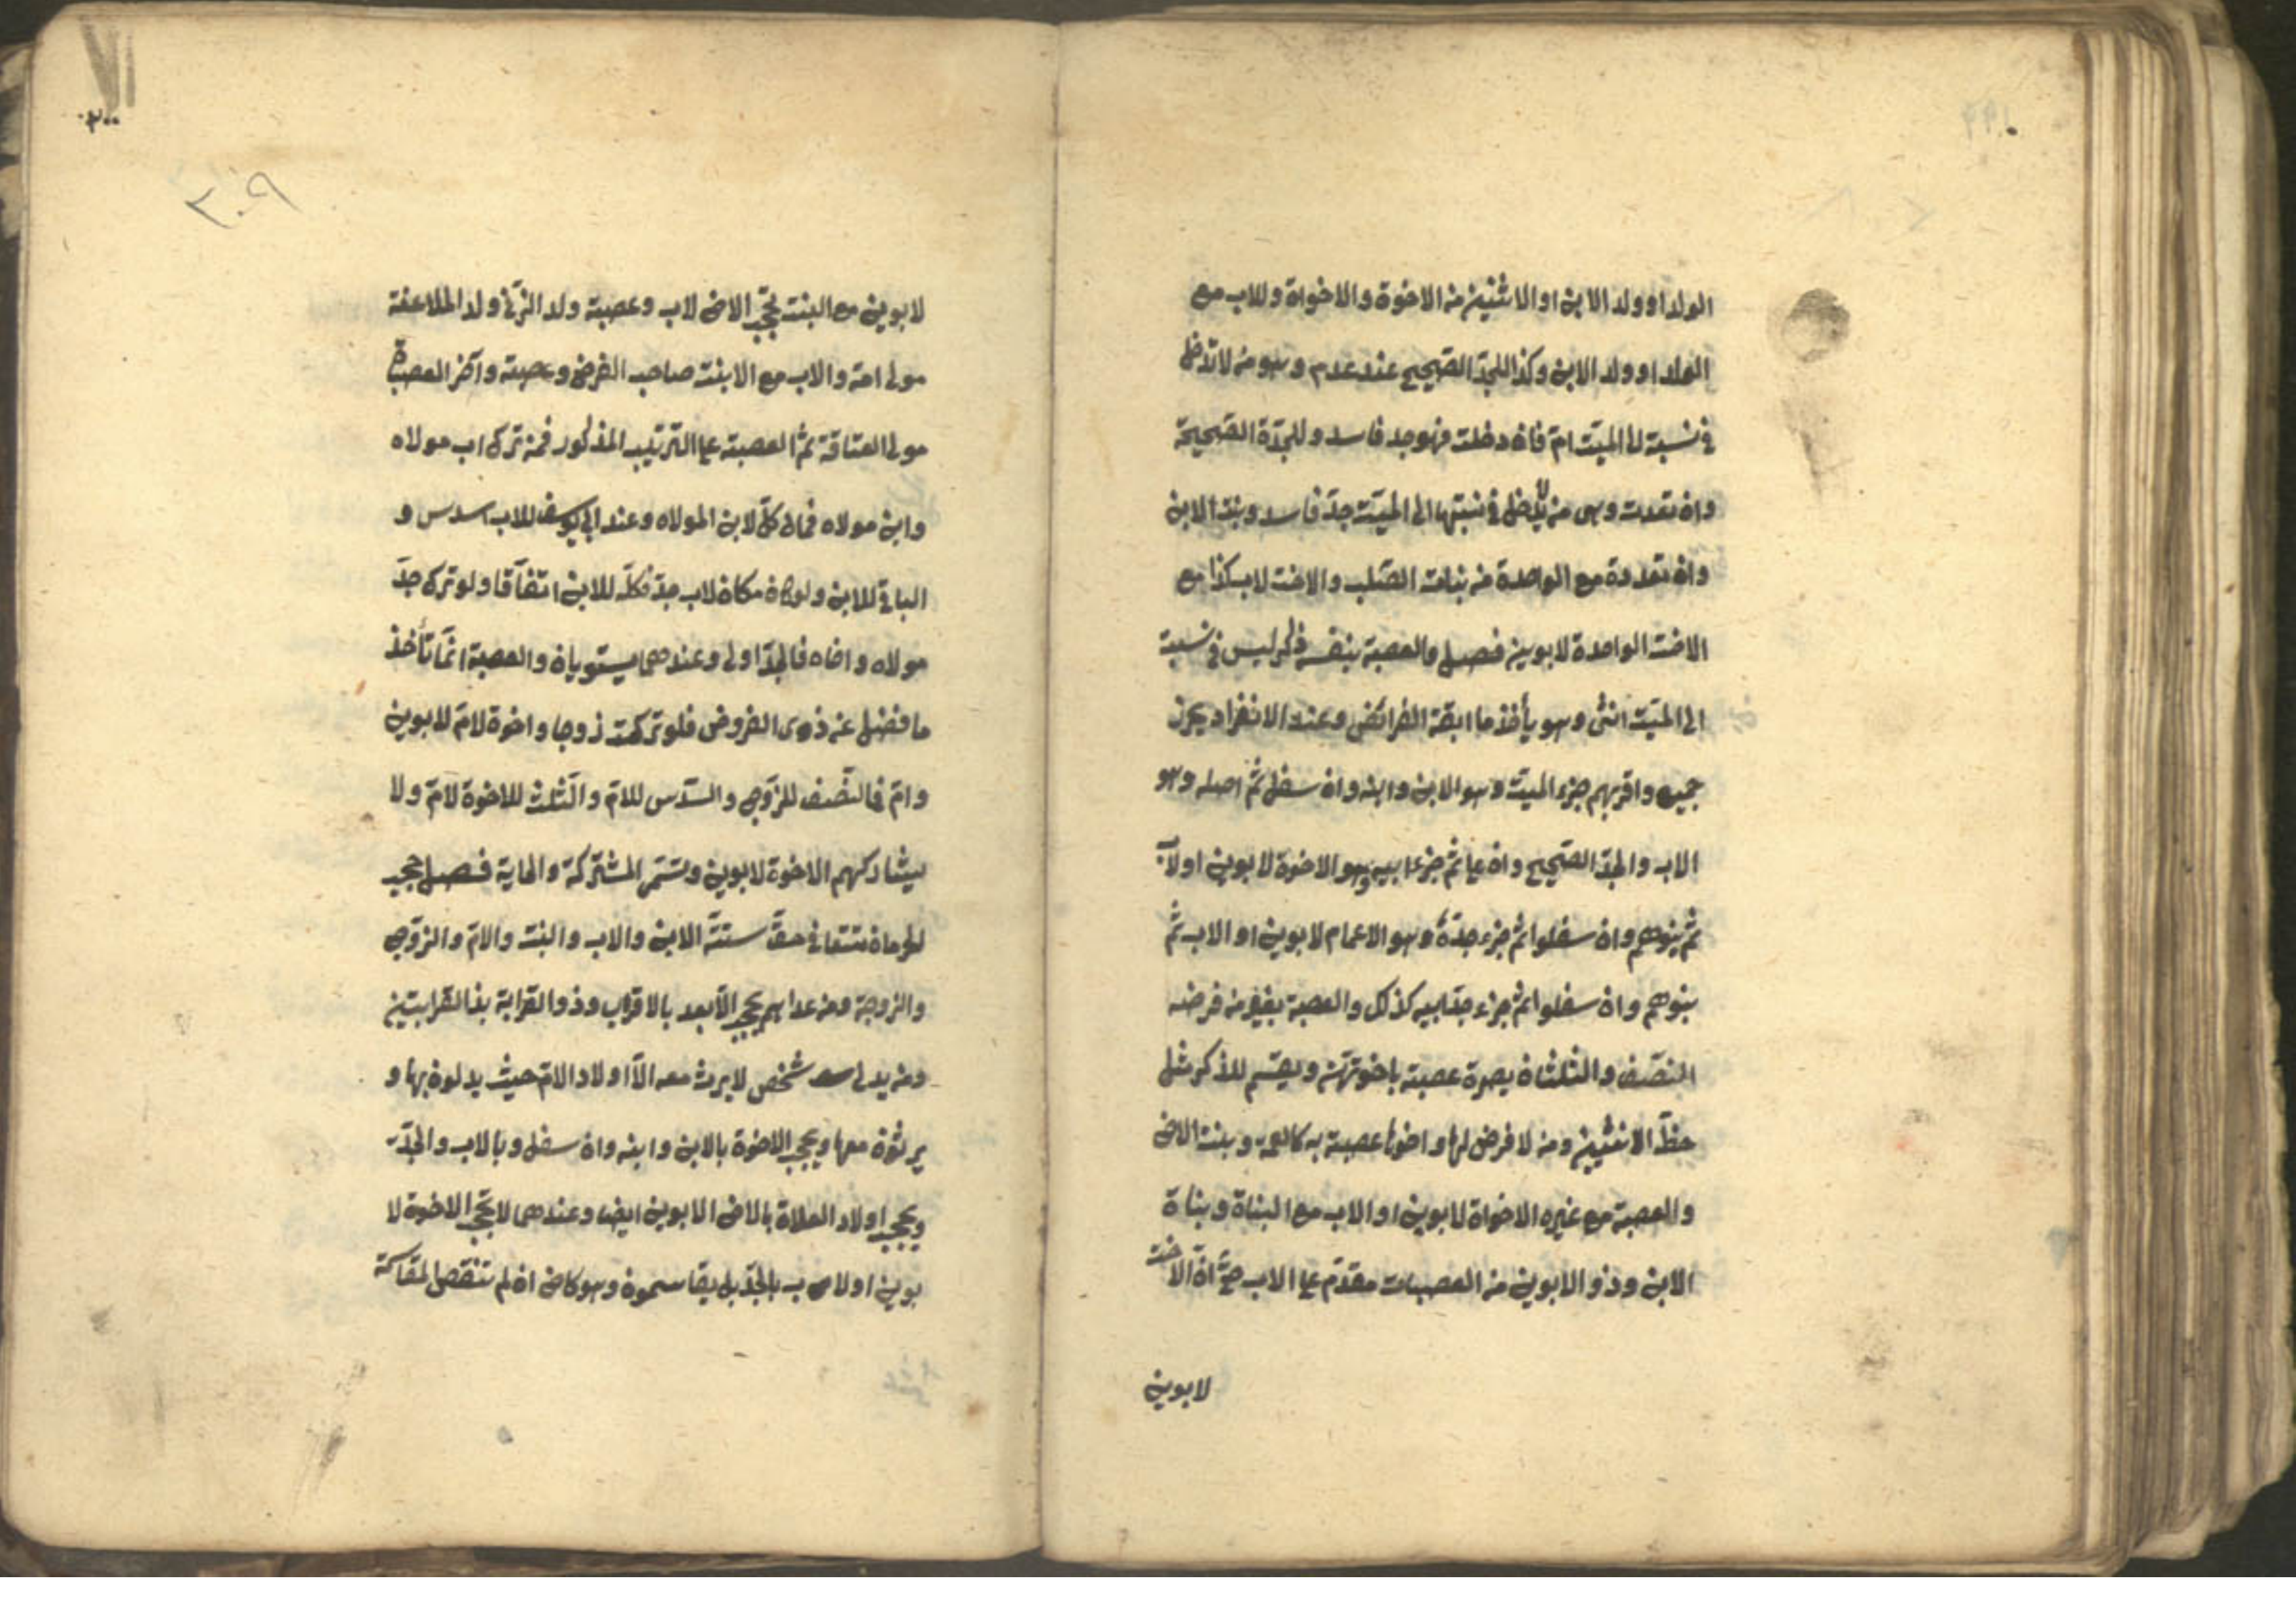 الولد او ولد الابن او الاثنين من الاخوة والاخواة وللاب مع
الولد او ولد الابن وكذا للجدّ الصّحيح عند عدم وهو من لا تدخل
في نسبة له الميّت امّ فان دخلت فهو جد فاسد وللجدّة الصّحيحة
وان تعدت وهى من لا يدخل في نسبتها الى الميّت جدّ فاسد وبنت الابن
وان تعددة مع الواحدة من بنات الصّلب والاخت لاب كذا مع
الاخت الواحدة لابوين فصل والعصبة بنفسه ذكر ليس في نسبة
الى الميّت انثى وهو يأخذ ما ابقة الفرائض وعند الانفراد يحرز
جميع واقربهم جزء الميّت وهو الابن وابنه وان سفل ثمّ اصله وهو
الاب والجدّ الصّحيح وان علا ثمّ جزء ابيه وهو الاخوة لابوين او لاب
ثمّ بنوهم وان سفلوا ثمّ جزء جدّه وهو الاعمام لابوين او الاب ثمّ
بنوهم وان سفلوا ثمّ جزء جدّ ابيه كذلك والعصبة بغيره من فرضه
النصّف والثلثان يصرة عصبته باخوتهنّ ويقسّم للذكر مثل
حظّ الانثيين ومن لا فرض لها واخوها عصبته به كالعمة وبنت الاخ
والعصبة مع غيره الاخواة لابوين او الاب مع البناة وبناة
الابن وذو الابوين من العصبات مقدّم على الاب حتّى انّ الاخت
لابوين
٣٠٠
٣٠٩
لابوين مع البنت تحجّب الاخ لاب وعصبته ولد الزّنى ولد الملاعنة
مولى امه والاب مع الابنت صاحب الفرض وعصبته وآخر العصباة
مولى العتاقة ثمّ العصبته على التّرتيب المذكور فمن ترك اب مولاه
وابن مولاه فماله كلّ لابن المولاه وعند ابى يوسف للاب سدس و
الباقي للابن ولو كان مكان لاب جدّ فكلّه للابن اتفاقا ولو ترك جدّ
مولاه واخاه فالجدّ اولى وعندهما يستويان والعصبة انّما تأخذ
ما فضل عن ذوى الفروض فلو تركت زوجا واخوة لامّ لابوين
وامّ فالنّصف للزّوج والسّدس للامّ والثلث للاخوة لامّ ولا
يشاركهم الاخوة لابوين وتستمى المشتركة والحاية فصل حجب
الحرمان منتفا في حقّ ستّة الابن والاب والبنت والامّ والزّوج
والزوجة ومن عداهم يحجب الأبعد بالاقراب وذو القرابة بذا القرابتين
ومن يدلى شخص لا يرث معه الاّ اولاد الامّ حيث يدلون بها و
يرثون معها ويحجب الاخوة بالابن وابنه وان سفل وبالاب والجدّ
ويحجب اولاد العلاة بالاخ الابوين ايضا وعندهما لا يحجب الاخوة لا
بوين او لاب بالجدّ بل يقاسمونه وهو كاخ ان لم تنقص المقاسمة